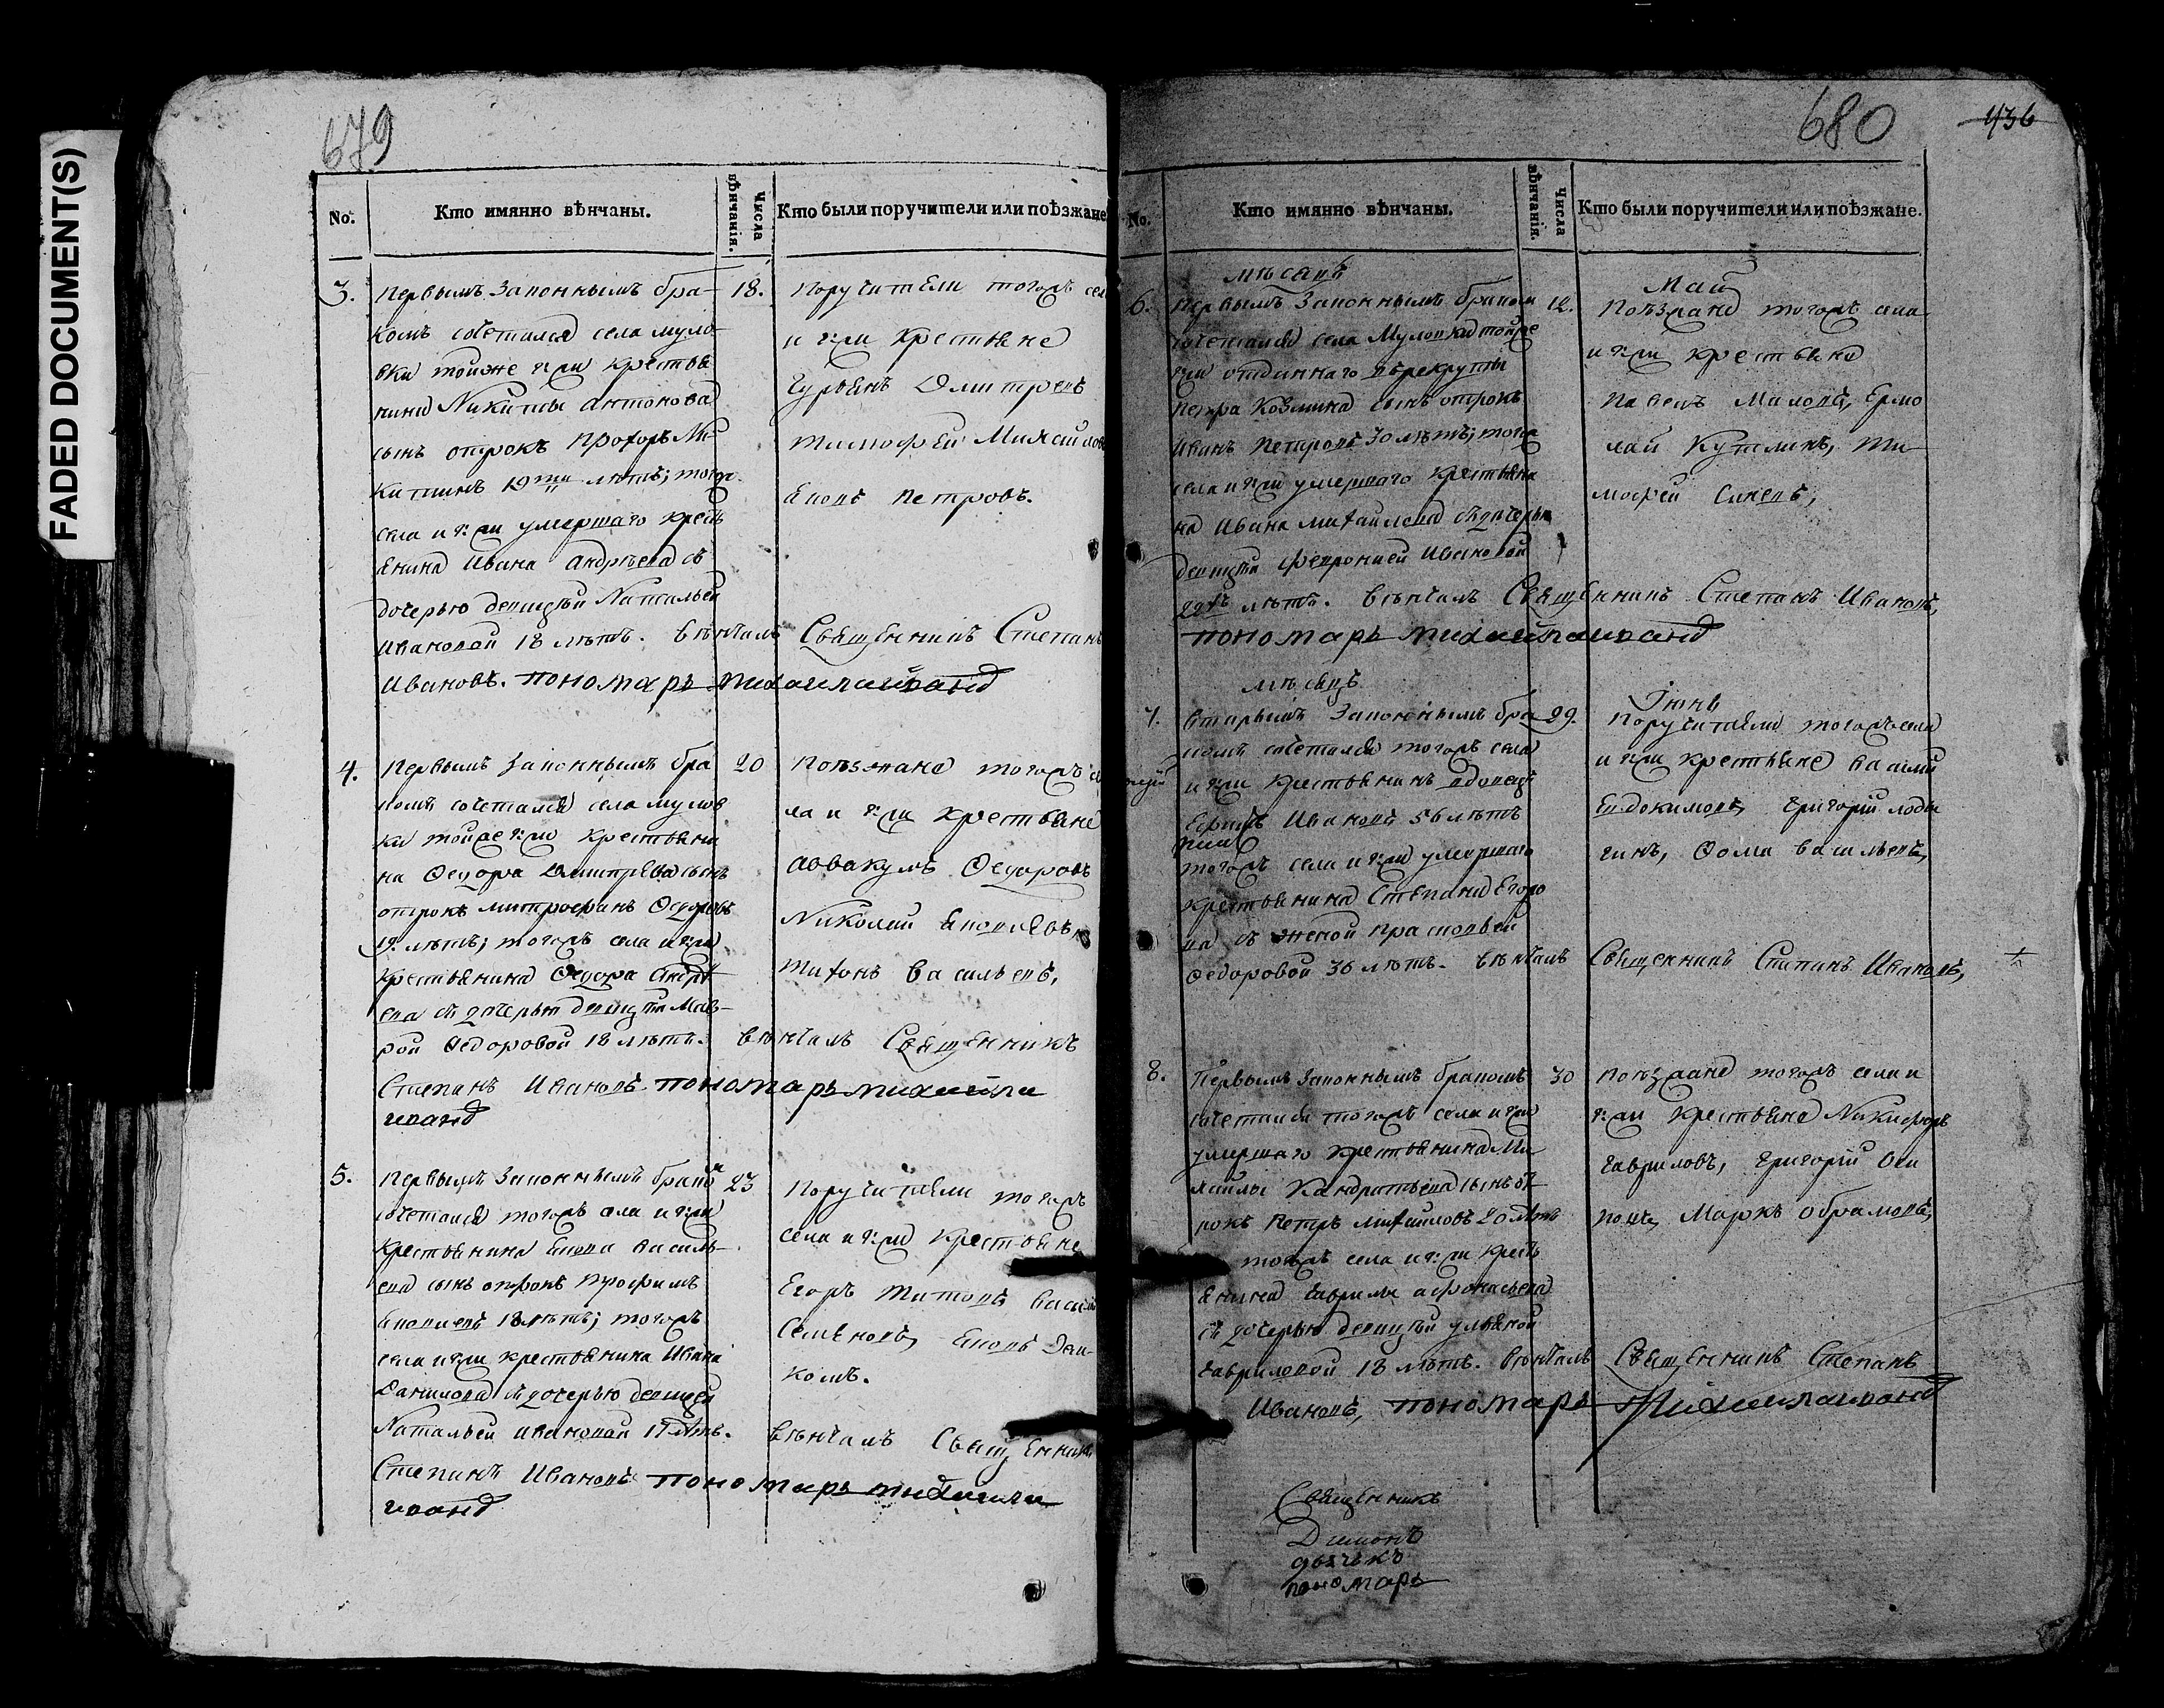 FADED DOCUMENT(S)
679
No.
Кто имянно вѣнчаны.
Числа вѣнчанія.
Кто были поручители или поѣзжане
3.
Первымъ законнымъ бра-
комъ сочетался села муло-
вки тойже крестья
нина Никиты Антонова
сынъ отрокъ Прохоръ Ни-
китинъ 19ти лѣтъ; тогоже
села и умершаго крест
янина Ивана Андрѣева съ
дочерью девицей Натальей
Ивановой 18 лѣтъ. вѣнчалъ Священникъ Степанъ
Ивановъ. пономарь михайла ивановъ
18.
Поручители тогожъ сел
и крестьяне
Гурьянъ Дмитревъ
тимофей Михайлов
Яковъ Петровъ.
4.
Первымъ законнымъ бра
комъ сочетался села мулов
ки тойже крестьяни
на Федора Дмитрева сынъ
отрокъ митрофанъ Федоровъ
19. лѣтъ; тогожъ села и
крестьянина Федора Андрѣ
ева съ дочерью девицей Мав-
рой Федоровой 18 лѣтъ. вѣнчалъ Священникъ
Степанъ Ивановъ. пономарь михайла
ивановъ
20
Поѣзжане тогожъ се
ла и крестьяне
Аввакумъ Федоровъ
Николай Яковлевъ,
Тихонъ Васильевъ,
5.
Первымъ законнымъ бракомъ
сочетался тогожъ села и
крестьянина Якова Василь-
ева сынъ отрокъ Трофимъ
Яковлевъ 18 лѣтъ; тогожъ
села и крестьянина Ивана
Данилова съ дочерью девицей
Натальей Ивановой 17 лѣтъ. вѣнчалъ Священникъ
Степанъ Ивановъ пономарь михайла
ивановъ
23
Поручители тогожъ
села и крестьяне
Егоръ Титовъ Васил
Семеновъ, Яковъ
680
436
No.
Кто имянно вѣнчаны.
Числа вѣнчанія.
Кто были поручители или поѣзжане.
мѣсяцъ
Май
6.
Первымъ законнымъ бракомъ
сочетался села Муловки тойже
отданнаго въ рекруты
Петра Козмина сынъ отрокъ
Иванъ Петровъ 30 лѣтъ; тогоже
села и умершаго крестьяни
на Ивана михайлова съ дочерью
девицей Февронией Ивановой
лѣтъ. вѣнчалъ Священникъ Степанъ Ивановъ,
пономарь михайла ивановъ
12.
Поѣзжане тогожъ села
и крестьяне
Павелъ Ермо
лай Кутлинъ, Ти
мофей
мѣсяцъ
Іюнь
7.
вторымъ законнымъ бра
комъ сочетался тогожъ села
и крестьянинъ вдовецъ
Ефимъ Ивановъ 56 лѣтъ
тогожъ села и умершаго
крестьянина Степана Егоро
ва съ женой Прасковьей
Федоровой 36 лѣтъ. вѣнчалъ Священникъ Степанъ Ивановъ,
29.
Поручители тогожъ села
и крестьяне василий
Евдокимовъ, Григорій лоды
гинъ, Фома васильевъ,
8.
Первымъ законнымъ бракомъ
сочетался тогожъ села и
умершаго крестьянина Ми
хайлы Кандратьева сынъ от
рокъ Петръ михайловъ 20 лѣтъ
тогожъ села и крест
янина Гаврилы Афонасьева
съ дочерью девицей ульяной
Гавриловой 18 лѣтъ. вѣнчалъ Священникъ Степанъ
Ивановъ, пономарь Михайла ивановъ
30
Поѣзжане тогожъ села и
крестьяне Никифоръ
Гавриловъ, Григорій Оси
повъ, Маркъ Обрамовъ,
Священникъ
Диаконъ
дьячекъ
пономарь